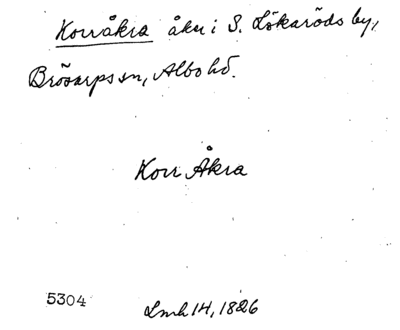 Korråkra åker i S. Lökaröds by,
Brösarps sn, Albo hd.
Korr Åkra
5304
Lmh 14, 1826